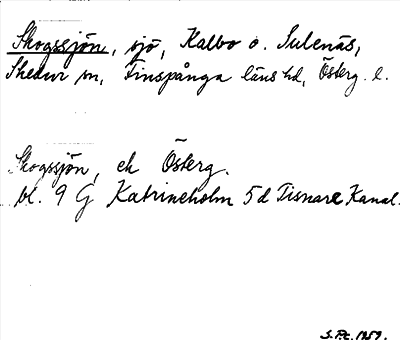 Skogssjön, sjö, Kalbo o. Sulenäs,
Skedevi sn, Finspånga läns hd, Österg. l.
Skogssjön, ek Österg.
bl. 9 G Katrineholm 5d Tisnare Kanal.
S.P.t. 1959.